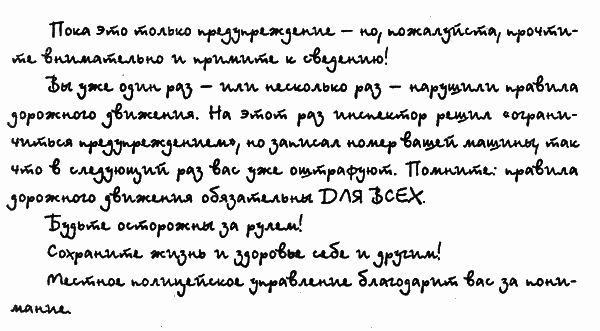 Пока это только предупреждение — но, пожалуйста, прочти-
те внимательно и примите к сведению!
Вы уже один раз — или несколько раз — нарушили правила
дорожного движения. На этот раз инспектор решил «ограни-
читься предупреждением», но записал номер вашей машины, так
что в следующий раз вас уже оштрафуют. Помните: правила
дорожного движения обязательны ДЛЯ ВСЕХ.
Будьте осторожны за рулем!
Сохраните жизнь и здоровье себе и другим!
Местное полицейское управление благодарит вас за пони-
мание.